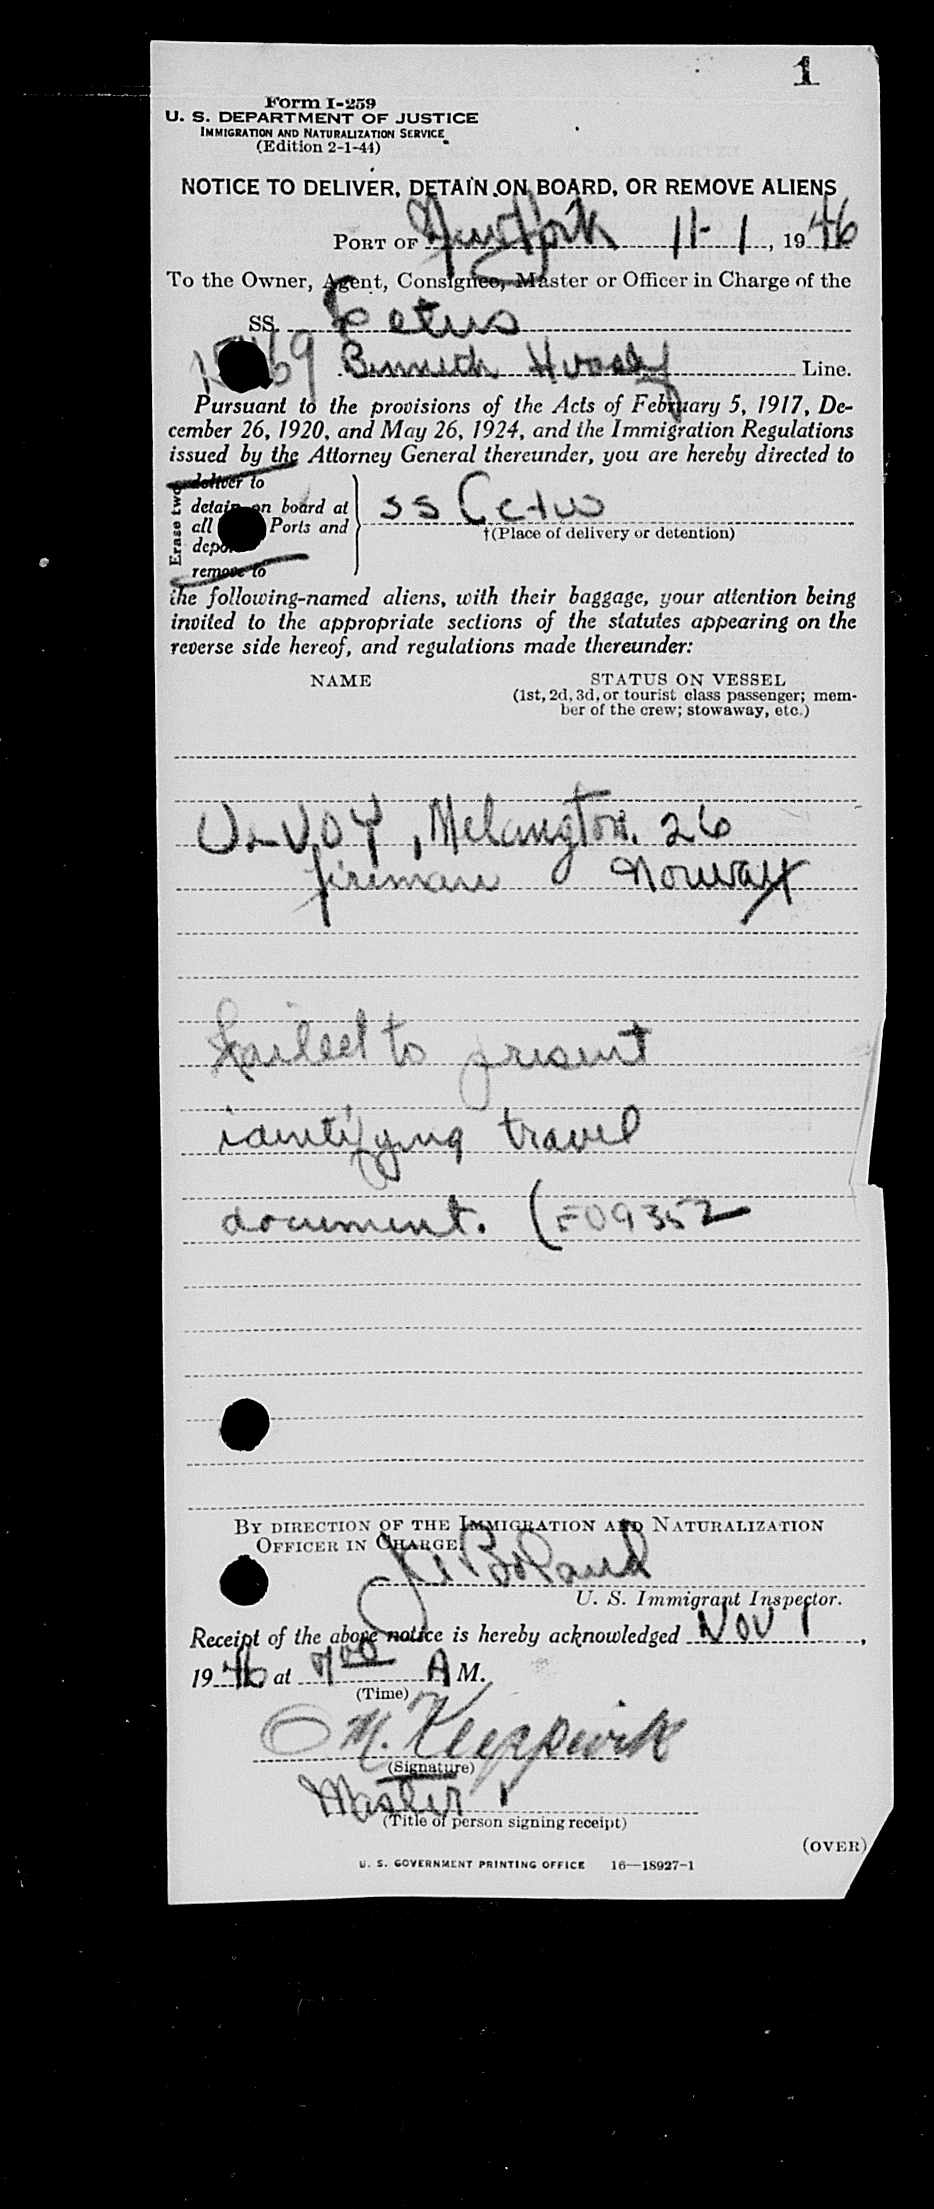 1
Form I-259
U. S. DEPARTMENT OF JUSTICE
IMMIGRATION AND NATURALIZATION SERVICE
(Edition 2-1-44)
NOTICE TO DELIVER, DETAIN ON BOARD, OR REMOVE ALIENS
PORT OF New York 11-1, 1946
To the Owner, Agent, Consignee, Master or Officer in Charge of the
SS. Cetus
Line.
Pursuant to the provisions of the Acts of February 5, 1917, De-
cember 26, 1920, and May 26, 1924, and the Immigration Regulations
issued by the Attorney General thereunder, you are hereby directed to
Erase two
deliver to
detain on board at
all Ports and
remove to
SS Cetus
†(Place of delivery or detention)
the following-named aliens, with their baggage, your attention being
invited to the appropriate sections of the statutes appearing on the
reverse side hereof, and regulations made thereunder:
NAME STATUS ON VESSEL
(1st, 2d, 3d, or tourist class passenger; mem-
ber of the crew; stowaway, etc.)
Melangton. 26
fireman Norway
Failed to present
identifying travel
document. (E09352
BY DIRECTION OF THE IMMIGRATION AND NATURALIZATION
OFFICER IN CHARGE:
Boland
U. S. Immigrant Inspector.
Receipt of the above notice is hereby acknowledged Nov 1,
1946 at 700 A M.
(Time)
M.
(Signature)
Master
(Title of person signing receipt)
(OVER)
U. S. GOVERNMENT PRINTING OFFICE 16—18927-1